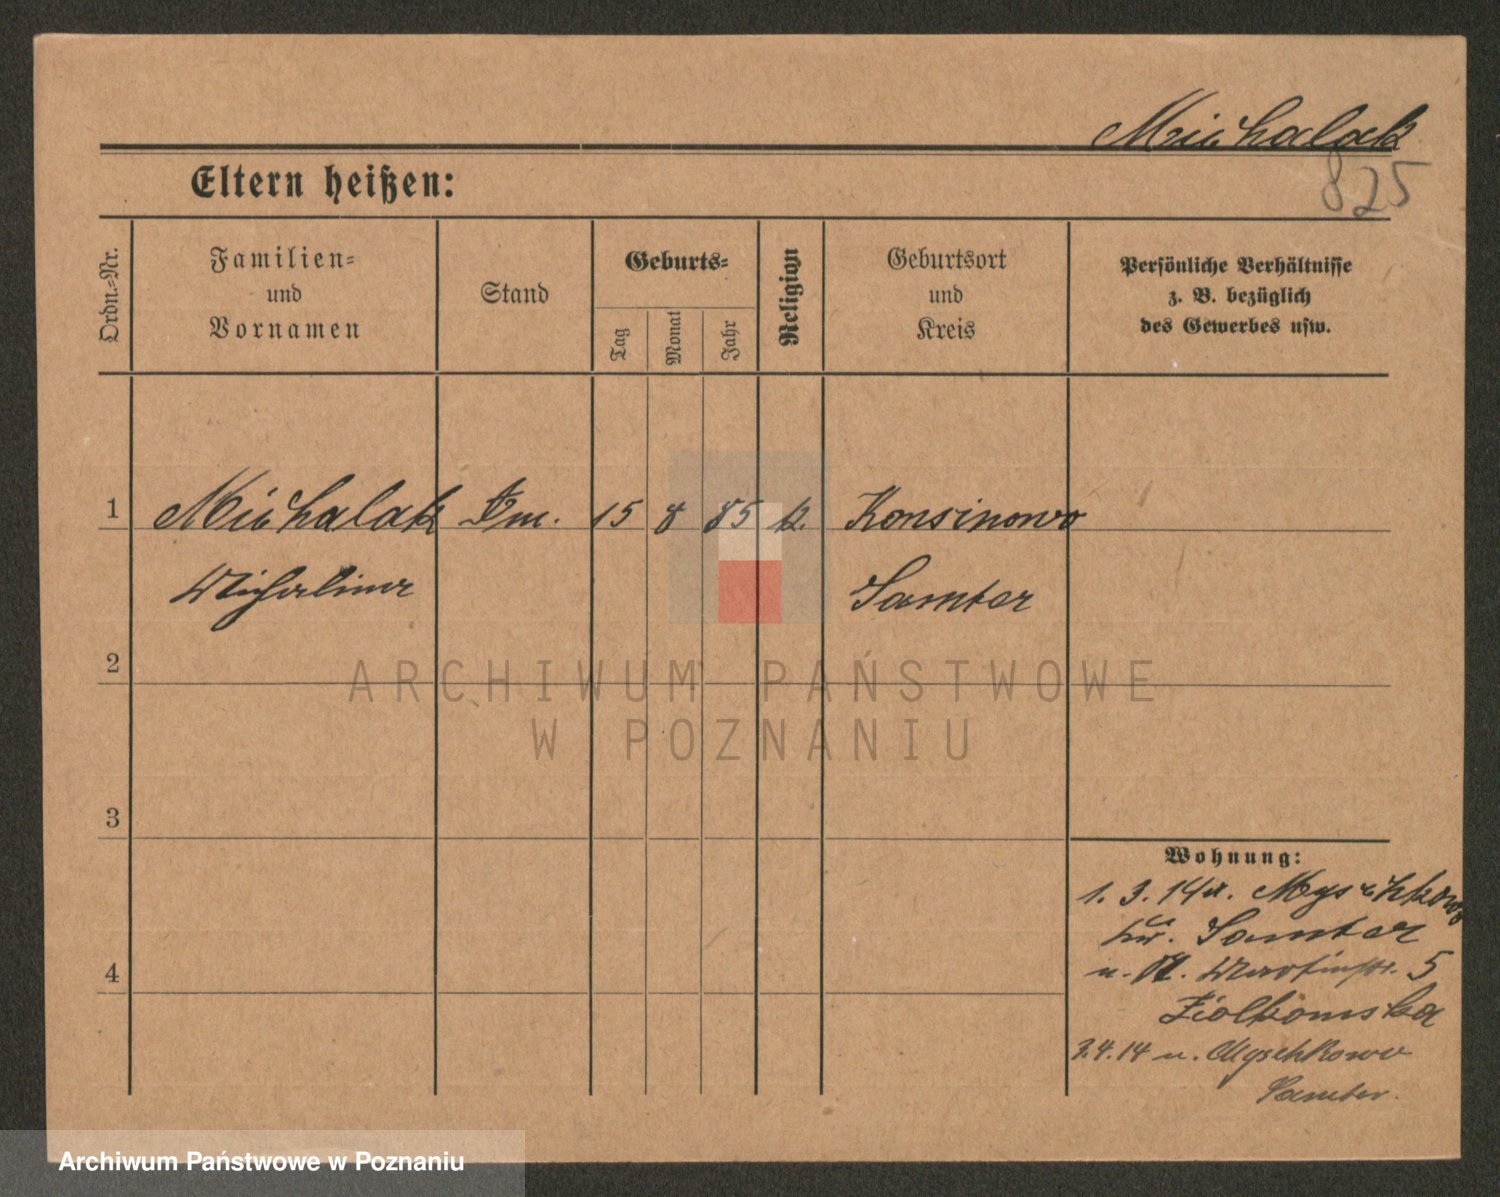 Michalak
825
Eltern heißen:
Ordn.-Nr.
Familien-
und
Vornamen
Stand
Geburts-
Tag
Monat
Jahr
Religion
Geburtsort
und
Kreis
Persönliche Verhältnisse
z. B. bezüglich
des Gewerbes usw.
1 Michalak 15 8 85 k. Konsinowo
Samter
2
ARCHIWUM PAŃSTWOWE
W POZNANIU
3
4
Wohnung:
1. 3. 14 Myschkowo
Samter
n. Martinstr. 5
Ziolkowska
3.4.14 n. Myschkowo
Samter.
Archiwum Państwowe w Poznaniu